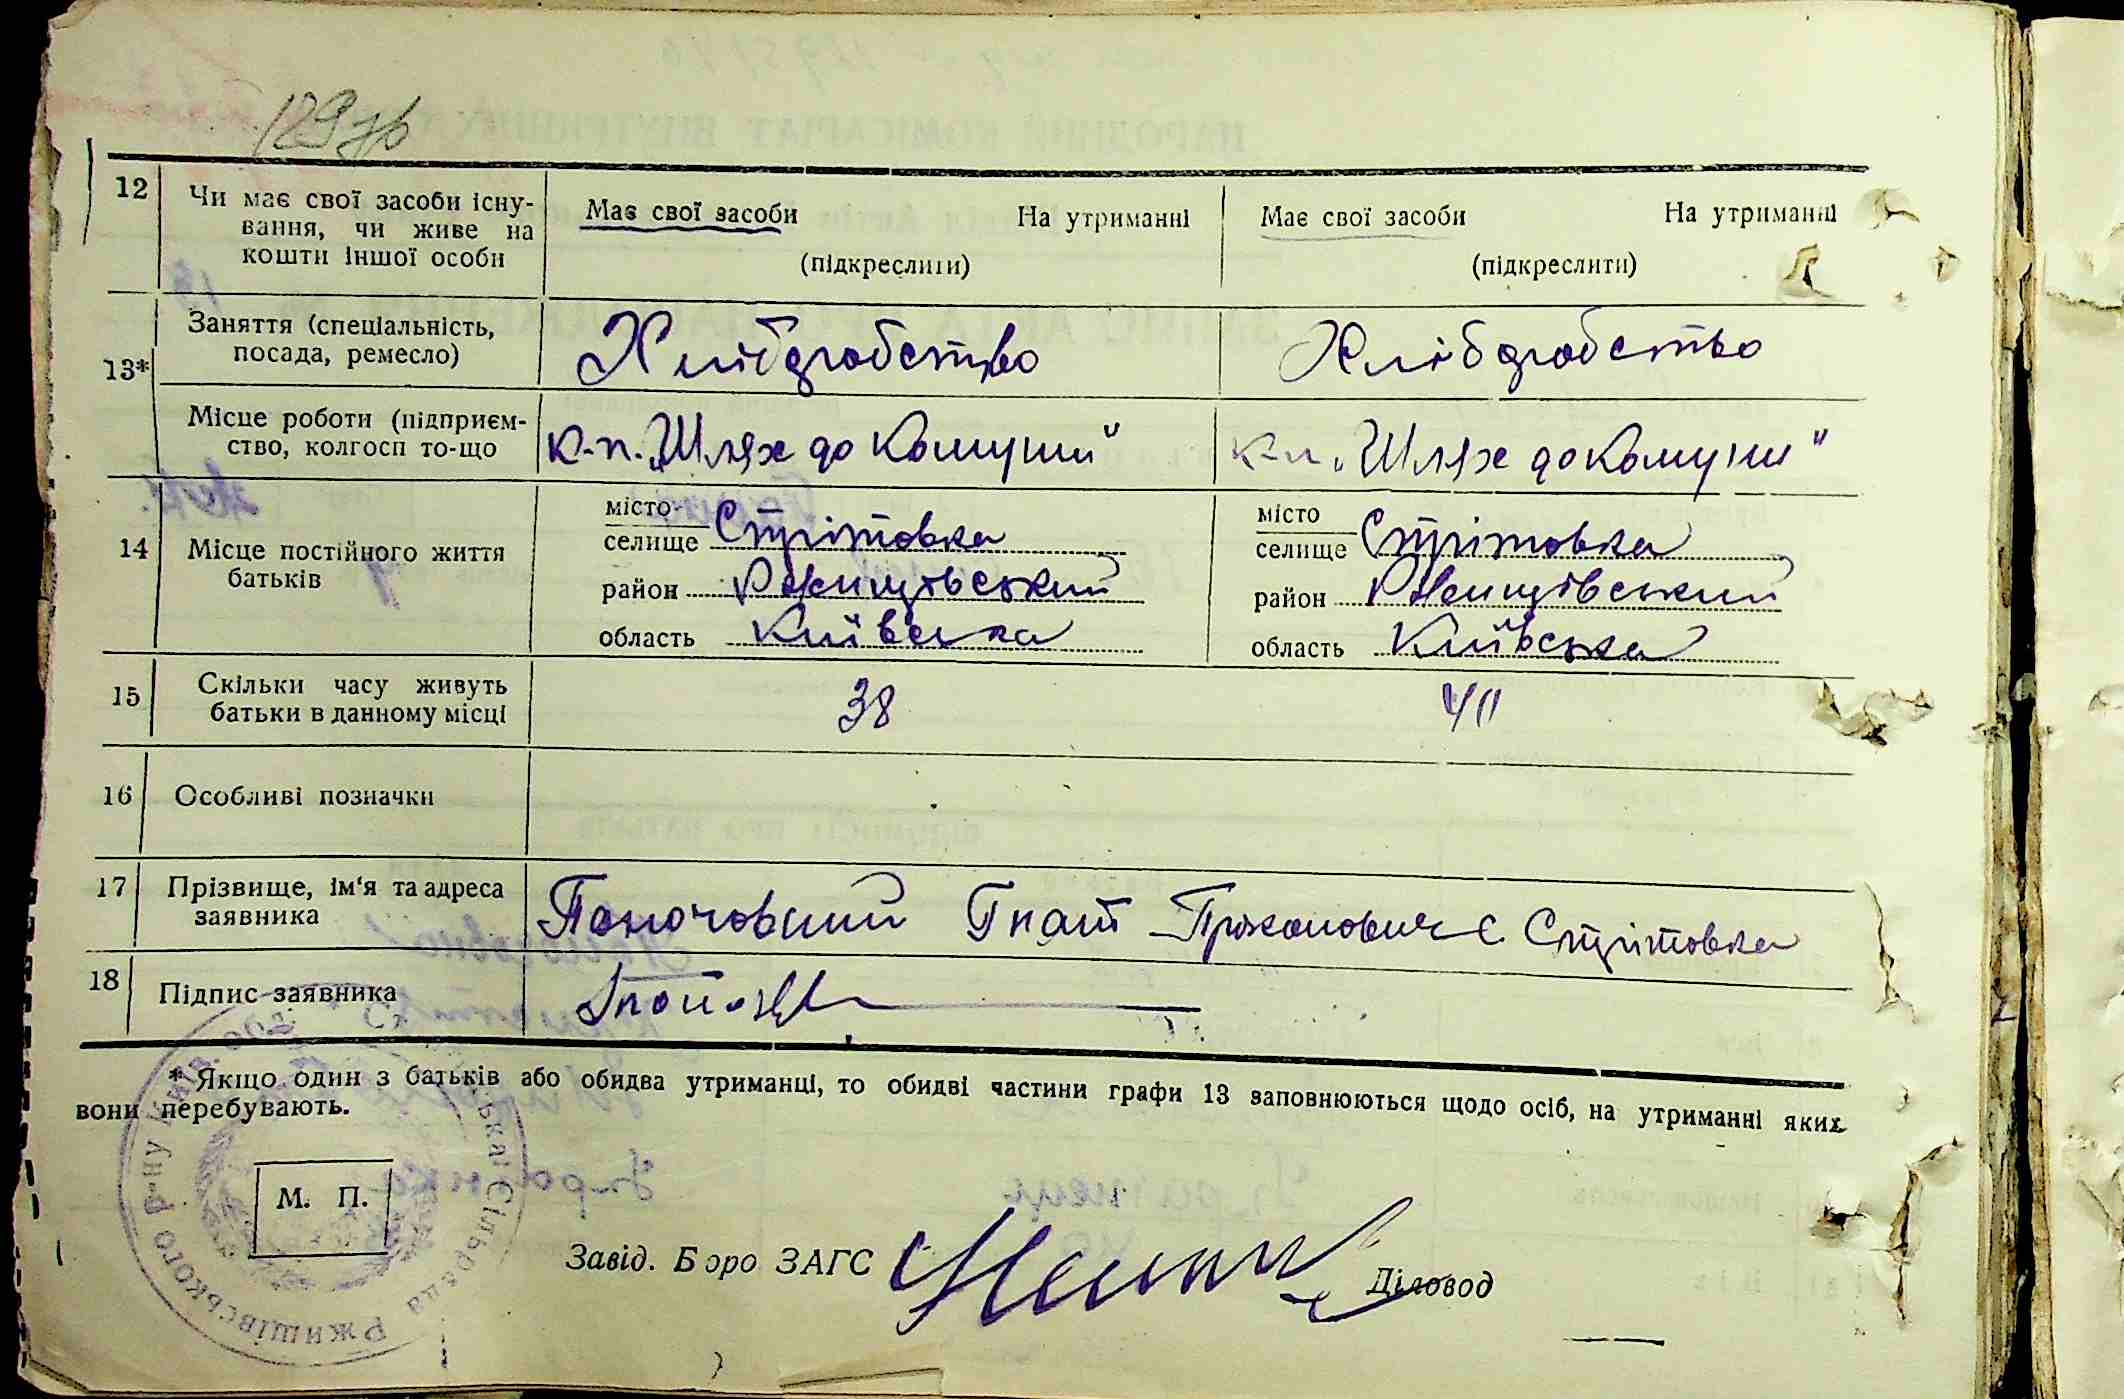 129зв
12 Чи має свої засоби існу- Має свої засоби На утриманні Має свої засоби На утриманні
вання, чи живе на
кошти іншої особи (підкреслити) (підкреслити)
13* Заняття (спеціальність, Хлібробство Хлібробство
посада, ремесло)
Місце роботи (підприєм- к-п. „Шлях до Комуни" к-п. „Шлях до Комуни"
ство, колгосп то-що
14 Місце постійного життя місто Стрітовка місто Стрітовка
батьків селище селище
район Ржищівський район Ржищівський
область Київська область Київська
15 Скільки часу живуть 38 40
батьки в данному місці
16 Особливі позначки
17 Прізвище, ім'я та адреса Гнат с. Стрітовка
заявника
18 Підпис заявника
* Якщо один з батьків або обидва утриманці, то обидві частини графи 13 заповнюються щодо осіб, на утриманні яких
вони перебувають.
М. П.
Завід. Бюро ЗАГС Діловод
Сільрада Ржищівського р-ну Київ. обл.